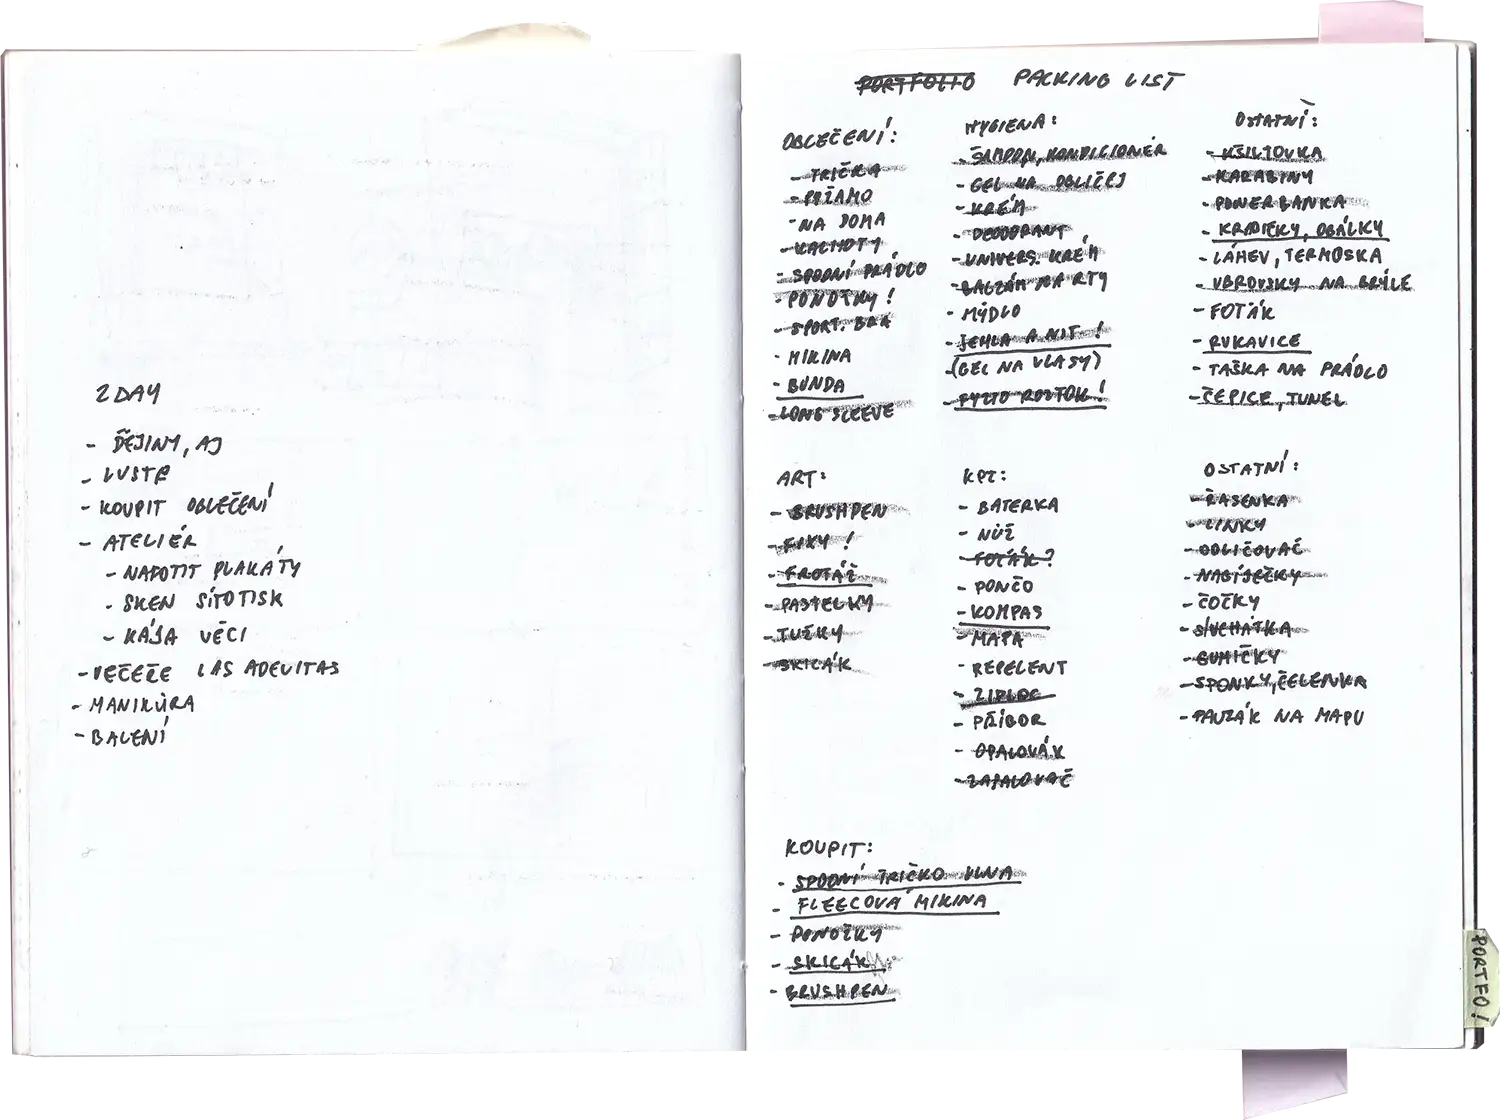 2DAY
- DĚJINY, AJ
- LUSTR
- KOUPIT OBLEČENÍ
- ATELIÉR
- NAFOTIT PLAKÁTY
- SKEN SÍTOTISK
- KÁJA VĚCI
- VEČEŘE LAS ADELITAS
- MANIKÚRA
- BALENÍ
PORTFOLIO PACKING LIST
OBLEČENÍ:
- TRIČKA
- PYŽAMO
- NA DOMA
- KALHOTY
- SPODNÍ PRÁDLO
- PONOŽKY!
- SPORT. BRA
- MIKINA
- BUNDA
- LONG SLEEVE
HYGIENA:
- ŠAMPON, KONDICIONÉR
- GEL NA OBLIČEJ
- KRÉM
- DEODORANT
- UNIVERS. KRÉM
- BALZÁM NA RTY
- MÝDLO
- JEHLA A NIT!
- (GEL NA VLASY)
- FYZIO ROZTOK!
OSTATNÍ:
- KŠILTOVKA
- KARABINY
- POWERBANKA
- KRABIČKY, OBÁLKY
- LÁHEV, TERMOSKA
- UBROUSKY NA BRÝLE
- FOTÁK
- RUKAVICE
- TAŠKA NA PRÁDLO
- ČEPICE, TUNEL
ART:
- BRUSHPEN
- FIXY!
- FROTÁŽ
- PASTELKY
- TUŽKY
- SKICÁK
KPZ:
- BATERKA
- NŮŽ
- FOŤÁK?
- PONČO
- KOMPAS
- MAPA
- REPELENT
- ZIPLOC
- PŘÍBOR
- OPALOVÁK
- ZAPALOVAČ
OSTATNÍ:
- ŘASENKA
- LINKY
- ODLIČOVAČ
- NABÍJEČKY
- ČOČKY
- SLUCHÁTKA
- GUMIČKY
- SPONKY, ČELENKA
- PAUZÁK NA MAPU
KOUPIT:
- SPODNÍ TRIČKO VLNA
- FLEECOVÁ MIKINA
- PONOŽKY
- SKICÁK
- BRUSHPEN
PORTFO!